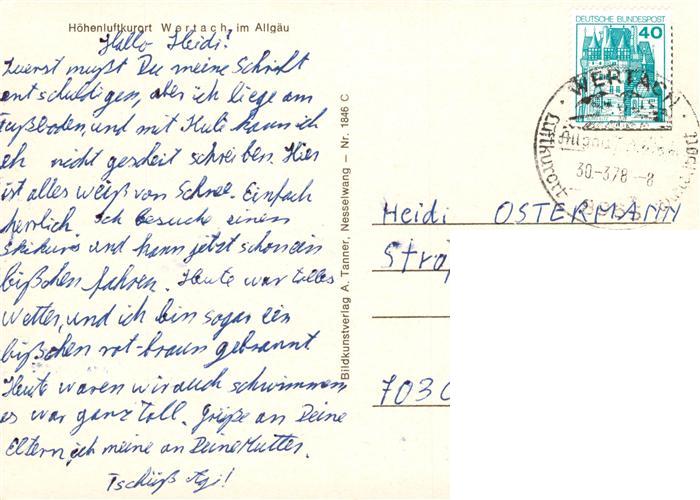 Höhenluftkurort Wertach im Allgäu
Hallo Heidi!
Zuerst mußt Du meine Schrift
entschuldigen, aber ich liege am
Fußboden, und mit Kule kann ich
eh nicht gescheit schreiben. Hier
ist alles weiß von Schnee. Einfach
herrlich. Ich besuche einen
Skikurs und kann jetzt schon ein
bißchen fahren. Heute war tolles
Wetter, und ich bin sogar ein
bißchen rot-braun gebrannt.
Heute waren wir auch schwimmen
es war ganz toll. Grüße an Deine
Eltern, ich meine an Deine Mutter.
Tschüß Agi!
Bildkunstverlag A. Tanner, Nesselwang – Nr. 3846 C
DEUTSCHE BUNDESPOST
40
WERTACH
Luftkurort
30.-3.78 - 8
8965
Heidi OSTERMANN
Straß
703